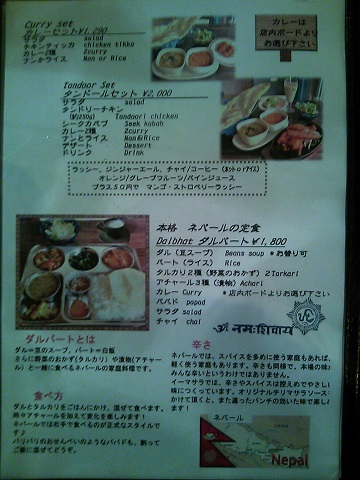 Curry set
カレーセット¥1,290
サラダ salad
チキンティッカ chicken tikka
カレー2種 2curry
ナンかライス Nan or Rice
カレーは
店内ボードより
お選び下さい
Tandoor Set
タンドールセット ¥2,000
サラダ salad
タンドリーチキン
(約250g) Tandoori chicken
シークカバブ Seek kabab
カレー2種 2curry
ナンとライス Nan&Rice
アザート Dessert
ドリンク Drink
ラッシー、ジンジャーエール、チャイ/コーヒー(ホットorアイス)
オレンジ/グレープフルーツ/パインジュース
プラス50円で マンゴ・ストロベリーラッシー
本格 ネパールの定食
Dalbhat ダルバート¥1,800
ダル(豆スープ) Beans soup *お替り可
バート(ライス) Rice
タルカリ2種(野菜のおかず)2Tarkari
アチャール3種(漬物)Achari
カレー Curry *店内ボードよりお選び下さい
パパド papad
サラダ salad
チャイ chai
ॐ नमः शिवाय
ダルバートとは
ダル=豆のスープ、バート=白飯
さらに野菜のおかず(タルカリ)や漬物(アチャー
ル)と一緒に食べるネパールの家庭料理です。
食べ方
ダルとタルカリをごはんにかけ、混ぜて食べます。
時々アチャールを加えて変化を楽しみます!
ネパールでは右手で食べるのが正式なスタイルで
す♪
パリパリのおせんべいのようなパパドも、割って
ご飯に混ぜてどうぞ。
辛さ
ネパールでは、スパイスを多めに使う家庭もあれば、
軽く使う家庭もあります。辛さも同様で、本場の味が
みんな辛いというわけではありません。
イーマサラでは、辛さやスパイスは控えめでやさしい
味につくっています。オリジナルチリマサラソースを
かけて頂くと、また違ったパンチの効いた味で楽しめ
ます!
ネパール
Nepal